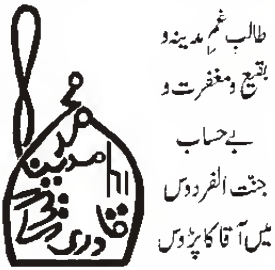 طالبِ غمِ مدینہ و
بقیع و مغفرت و
بے حساب
جنّت الفردوس
میں آقا کا پڑوس
محمد
الیاس
قادری